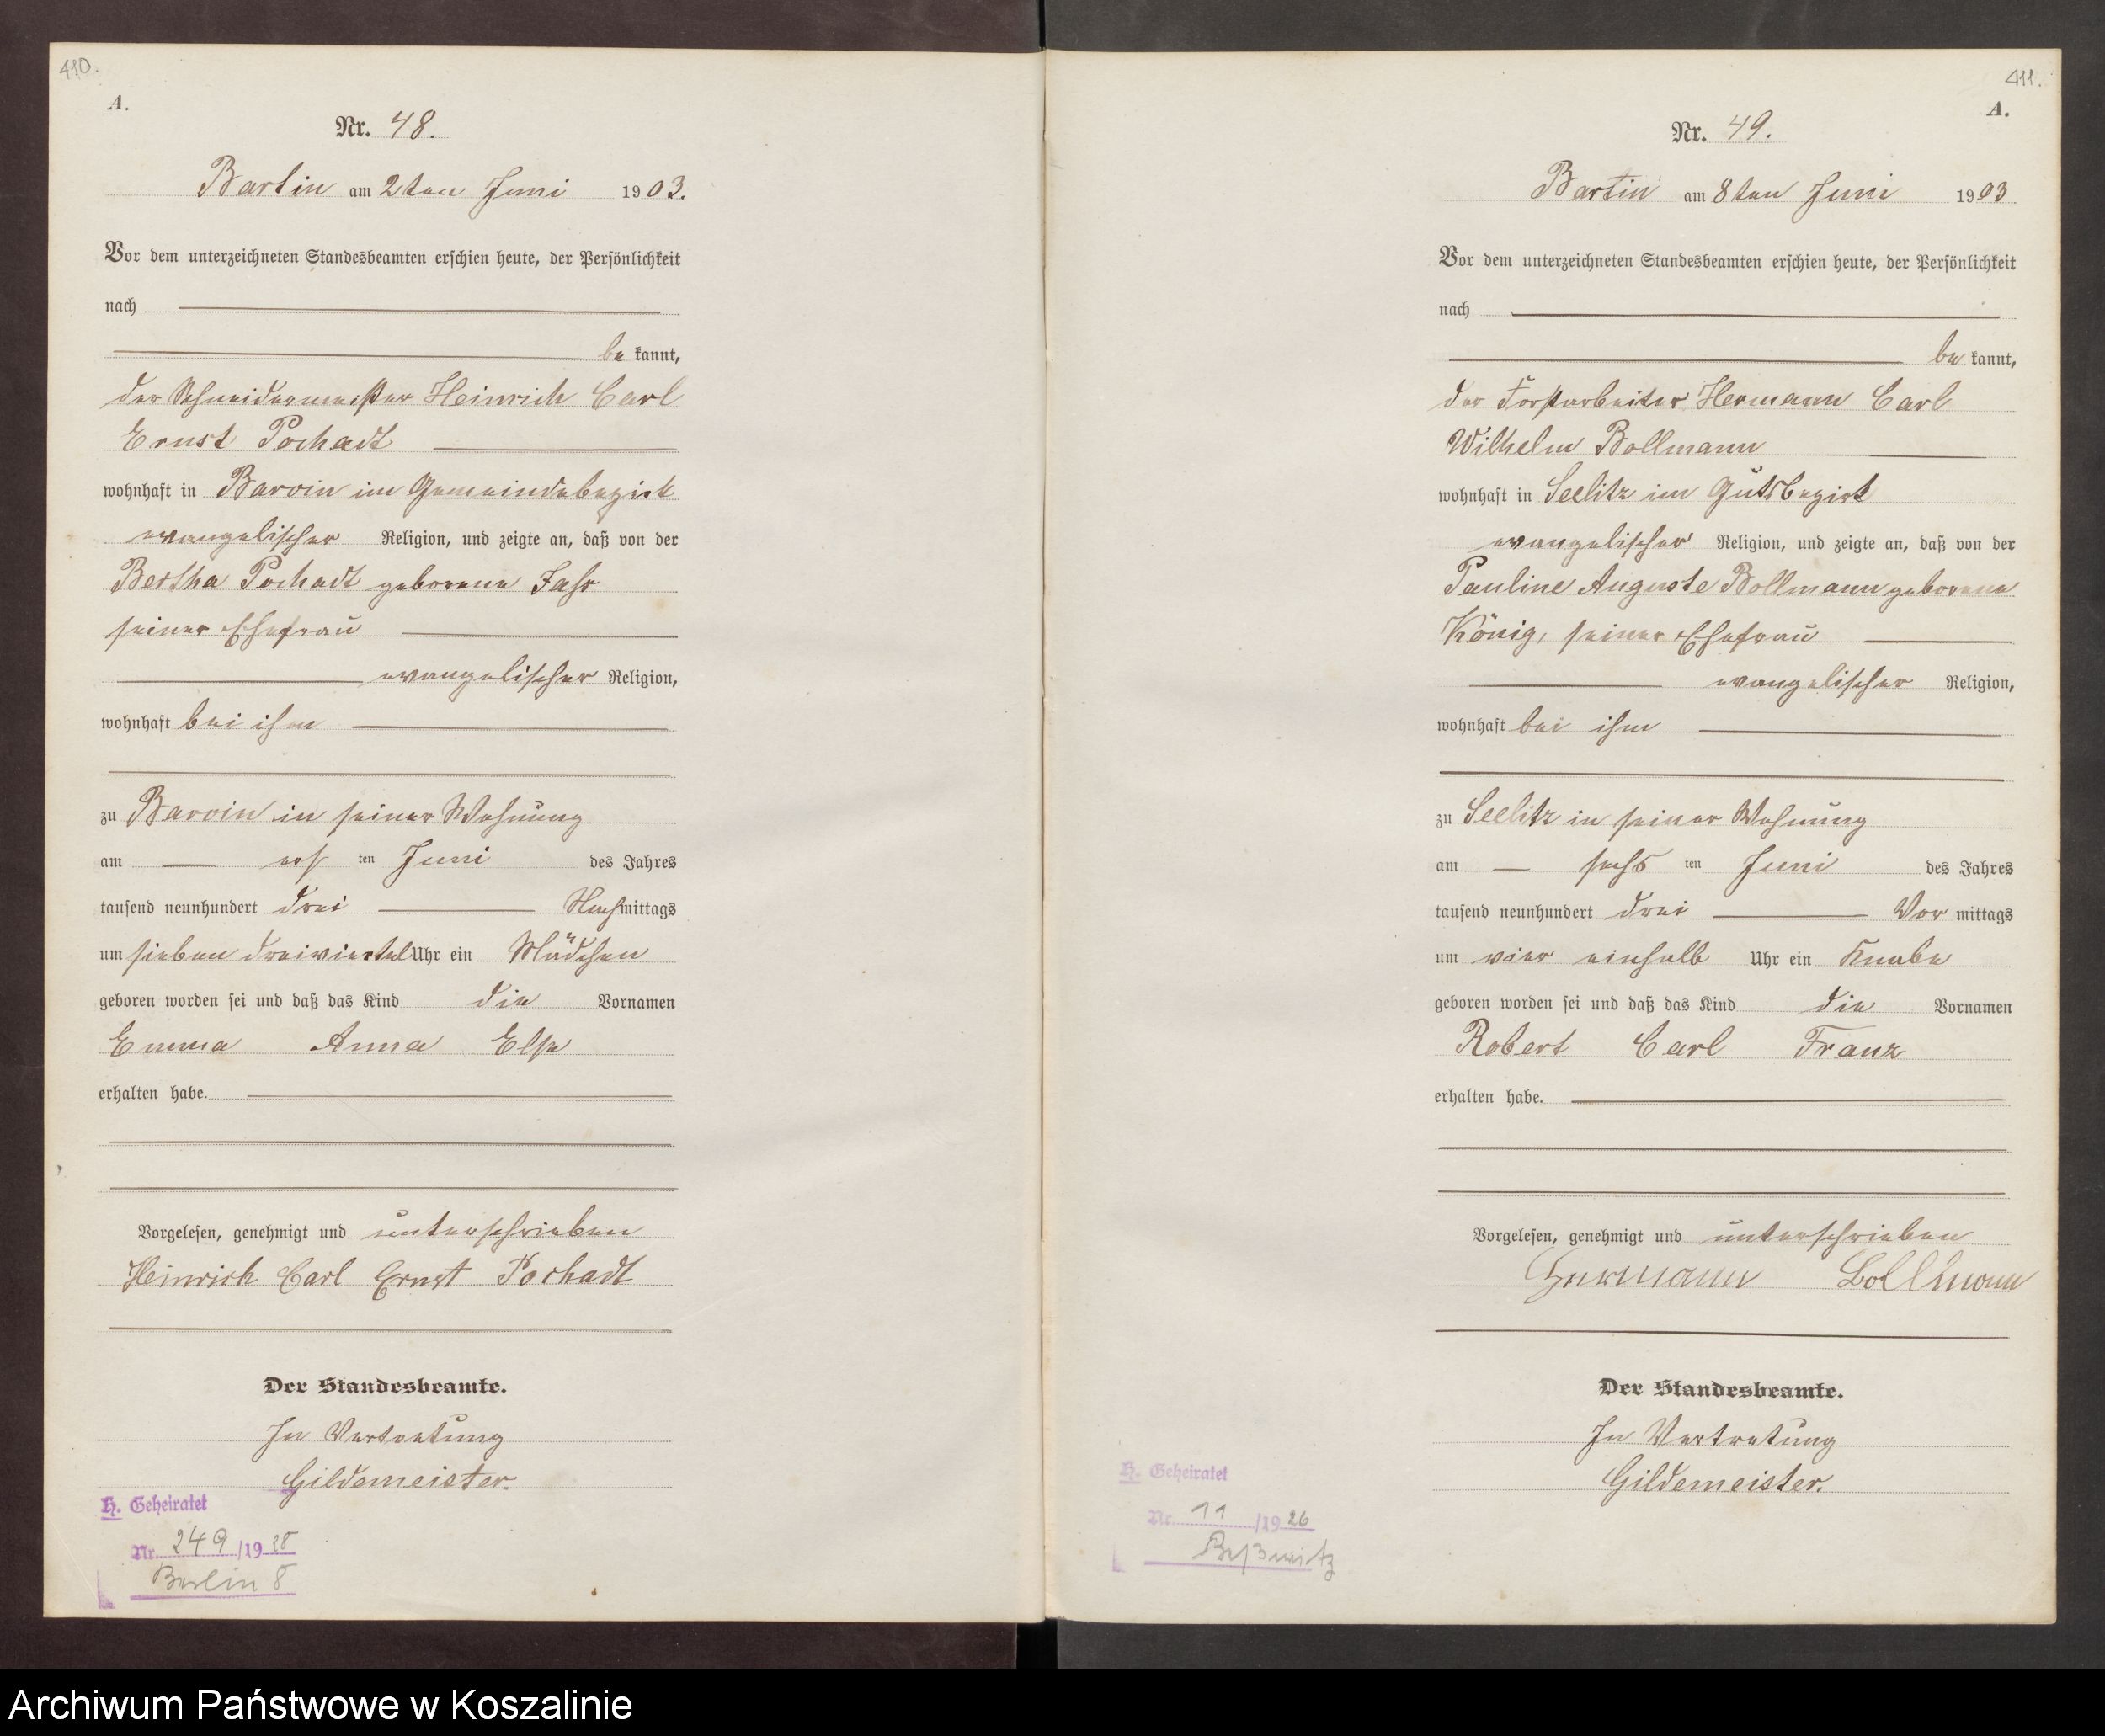 410.
A.
Nr. 48.
Bartin am 2ten Juni 1903.
Vor dem unterzeichneten Standesbeamten erschien heute, der Persönlichkeit
nach
be kannt,
der Schneidermeister Heinrich Carl
Ernst Pochadt
wohnhaft in Barvin im Gemeindebezirk
evangelischer Religion, und zeigte an, daß von der
Bertha Pochadt geborene Fahr
seiner Ehefrau
evangelischer Religion,
wohnhaft bei ihm
zu Barvin in seiner Wohnung
am ers ten Juni des Jahres
tausend neunhundert drei Nachmittags
um sieben dreiviertel Uhr ein Mädchen
geboren worden sei und daß das Kind die Vornamen
Emma Anna Else
erhalten habe.
Vorgelesen, genehmigt und unterschrieben
Heinrich Carl Ernst Pochadt
Der Standesbeamte.
In Vertretung
Gildemeister.
H. Geheiratet
Nr. 249/1928
Berlin 8
411.
A.
Nr. 49.
Bartin am 8ten Juni 1903
Vor dem unterzeichneten Standesbeamten erschien heute, der Persönlichkeit
nach
be kannt,
der Forstarbeiter Hermann Carl
Wilhelm Bollmann
wohnhaft in Seelitz im Gutsbezirk
evangelischer Religion, und zeigte an, daß von der
Pauline Auguste Bollmann geborene
König, seiner Ehefrau
evangelischer Religion,
wohnhaft bei ihm
zu Seelitz in seiner Wohnung
am sechs ten Juni des Jahres
tausend neunhundert drei Vor mittags
um vier einhalb Uhr ein Knabe
geboren worden sei und daß das Kind die Vornamen
Robert Carl Franz
erhalten habe.
Vorgelesen, genehmigt und unterschrieben
Hermann Bollmann
Der Standesbeamte.
In Vertretung
Gildemeister.
H. Geheiratet
Nr. 11/1926
Beßwitz
Archiwum Państwowe w Koszalinie